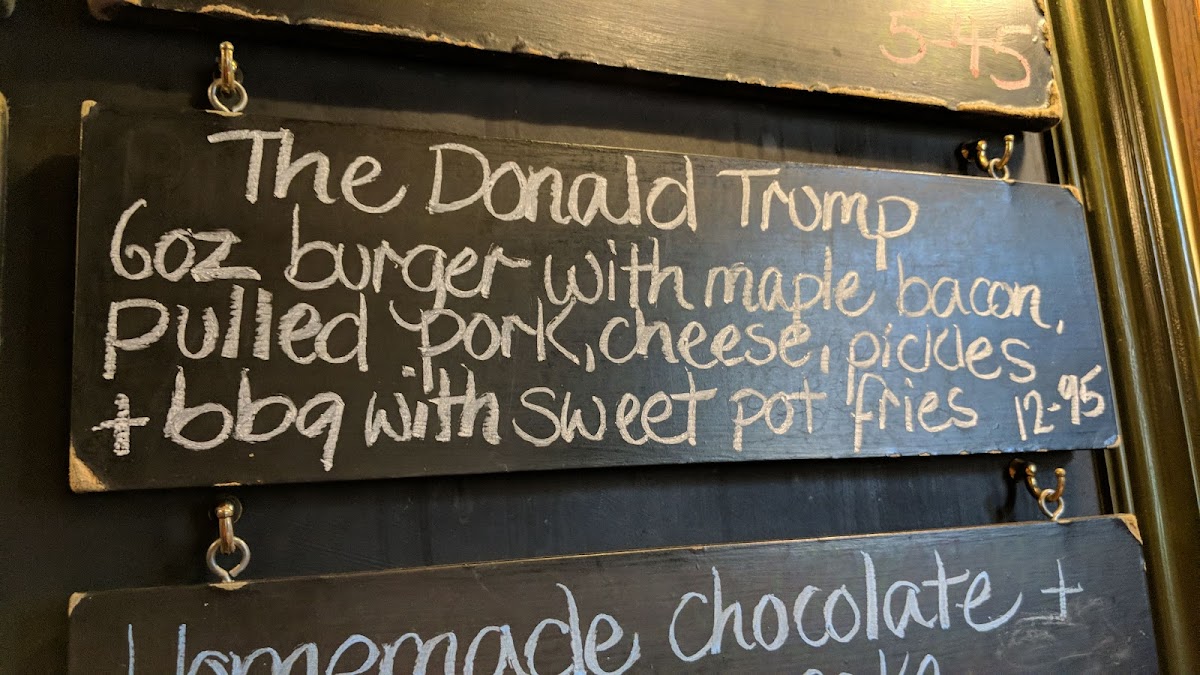 5-45
The Donald Trump
6oz burger with maple bacon,
Pulled pork, cheese, pickles
+ bbq with sweet pot fries 12-95
Homemade chocolate +